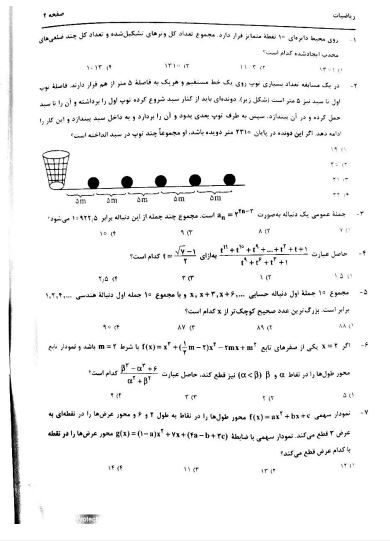 ریاضیات
صفحه ۲
۱- روی محیط دایره‌ای ۱۰ نقطهٔ متمایز قرار دارد. مجموع تعداد کل وترهای تشکیل‌شده و تعداد کل چند ضلعی‌های
محدب ایجادشده کدام است؟
۱) ۱۳۰۱ ۲) ۱۱۰۳ ۳) ۱۳۱۰ ۴) ۱۰۱۳
۲- در یک مسابقه تعداد بسیاری توپ روی یک خط مستقیم و هریک به فاصلهٔ ۵ متر از هم قرار دارند. فاصلهٔ توپ
اول تا سبد نیز ۵ متر است (شکل زیر). دونده‌ای باید از کنار سبد شروع کرده توپ اول را برداشته و آن را تا سبد
حمل کرده و در آن بیندازد. سپس به طرف توپ بعدی بدود و آن را بردارد و به داخل سبد بیندازد و این کار را
ادامه دهد. اگر این دونده در پایان ۲۳۱۰ متر دویده باشد، او مجموعاً چند توپ در سبد انداخته است؟
۱) ۱۹
۲) ۲۰
۳) ۲۱
۴) ۲۲
۵m ۵m ۵m ۵m ۵m
۳- جملهٔ عمومی یک دنباله به‌صورت aₙ = ۲^(۲n-۳) است. مجموع چند جمله از این دنباله برابر ۱۰۹۲۲٫۵ می‌شود؟
۱) ۷ ۲) ۸ ۳) ۹ ۴) ۱۰
۴- حاصل عبارت (t^۱۱ + t^۱۰ + t^۹ + ... + t^۲ + t + ۱)/(t^۹ + t^۶ + t^۳ + ۱) به‌ازای t = (√۷ - ۱)/۲ کدام است؟
۱) ۱٫۵ ۲) ۱ ۳) ۲ ۴) ۲٫۵
۵- مجموع ۱۰ جملهٔ اول دنباله حسابی x, x+۳, x+۶, ... و با مجموع ۱۰ جمله اول دنبالهٔ هندسی ۱,۲,۴,...
برابر است. بزرگ‌ترین عدد صحیح کوچک‌تر از x کدام است؟
۱) ۸۸ ۲) ۸۹ ۳) ۸۷ ۴) ۹۰
۶- اگر x = ۲ یکی از صفرهای تابع f(x) = x^۳ + (۱/۲ m - ۲)x^۲ - ۲mx + m^۲ با شرط m = ۲ باشد و نمودار تابع
محور طول‌ها را در نقاط α و β (α < β) نیز قطع کند، حاصل عبارت (β^۳ - α^۳ + ۶)/(α^۲ + β^۲) کدام است؟
۱) ۵ ۲) ۲ ۳) ۳ ۴) ۴
۷- نمودار سهمی f(x) = ax^۲ + bx + c محور طول‌ها را در نقاط به طول ۲ و ۶ و محور عرض‌ها را در نقطه‌ای به
عرض ۳ قطع می‌کند. نمودار سهمی با ضابطهٔ g(x) = (۱-a)x^۲ + ۷x + (۴a - b + ۳c) محور عرض‌ها را در نقطه
با کدام عرض قطع می‌کند؟
۱) ۱۲ ۲) ۱۳ ۳) ۱۱ ۴) ۱۴